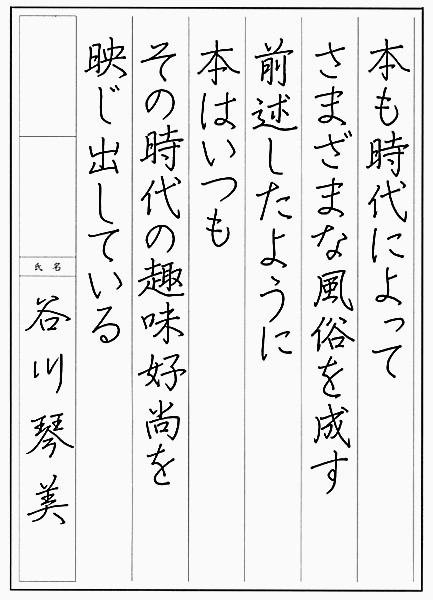 本も時代によって
さまざまな風俗を成す
前述したように
本はいつも
その時代の趣味好尚を
映じ出している
氏名
谷川琴美